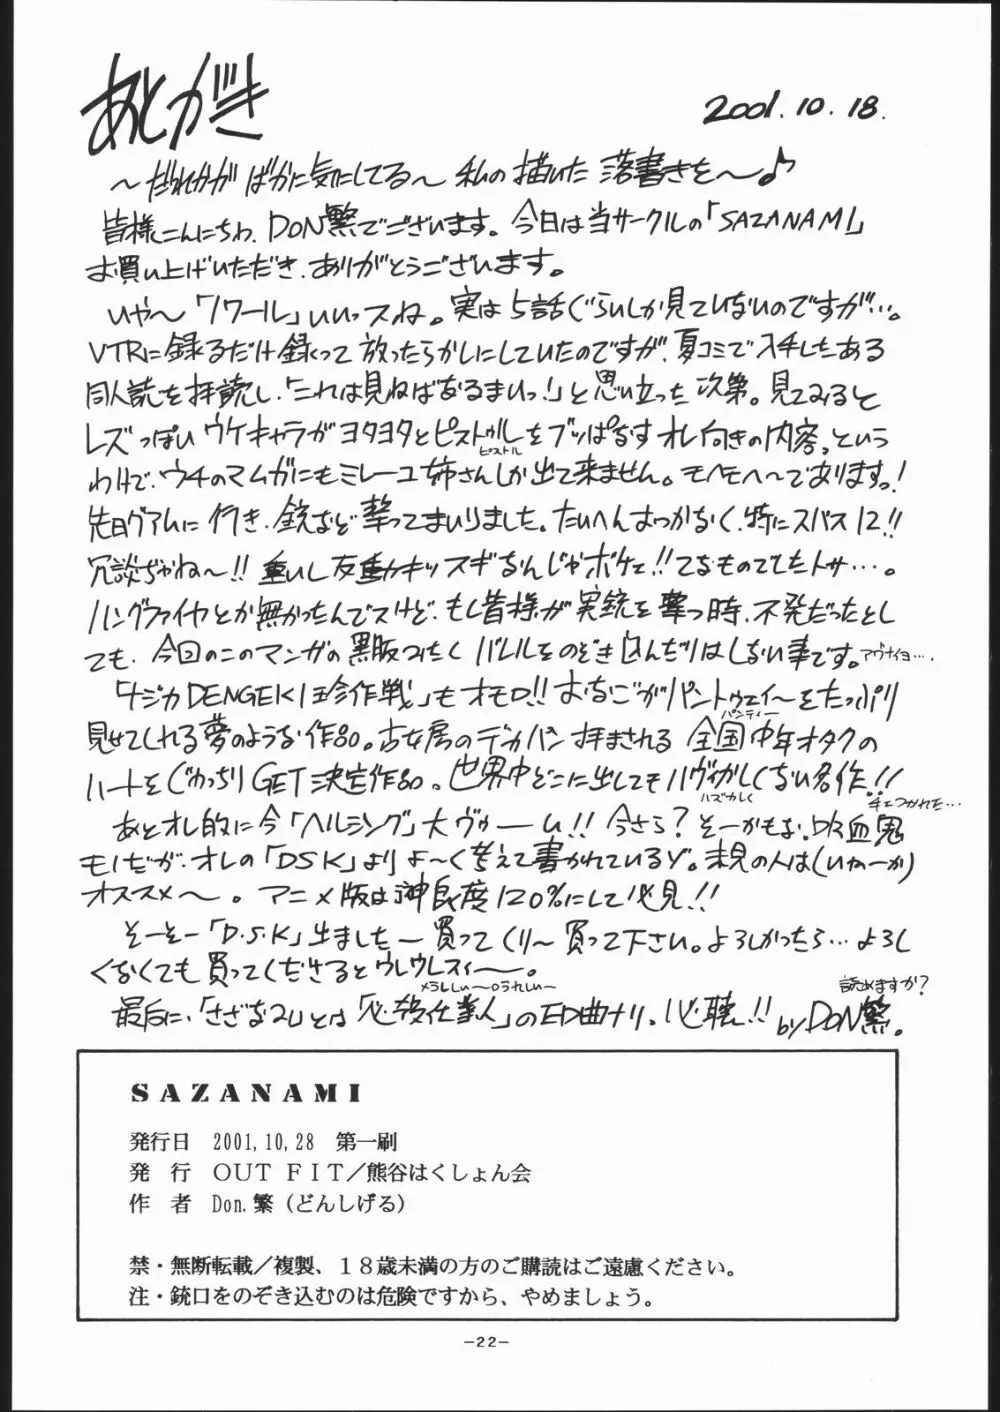 あとがき
2001.10.18.
～だれかがばかに気にしてる～私の描いた落書きを～♪
皆様こんにちわ、DON繁でございます。今日は当サークルの「SAZANAMI」
お買い上げいただき、ありがとうございます。
いや～「ノワール」いいっスね。実は5話ぐらいしか見ていないのですが…。
VTRに録るだけ録くって放ったらかしにしていたのですが、夏コミで入手したある
同人誌を拝読し、「これは見ねばなるまいっ!」と思い立った次第。見てみると
レズっぽいウケキャラがヨタヨタとピストゥルをブッぱなすオレ向きの内容。という
ピストル
わけで、ウチのマムガにもミレーユ姉さんしか出て来ません。モヘモヘ～であります。っ!
先日グアムに行き、銃など撃ってまいりました。たいへんおっかなく、特にスパス12!!
冗談ぢゃね～!! 重いし反動キッツスギるんじゃボケェ!!てなものでしたトサ…。
ハングファイヤとか無かったんでスけど、もし皆様が実銃を撃つ時、不発だったとし
ても、今回のこのマンガの黒服みたくバレルをのぞき込んだりはしない事です。アヴナイヨ….
「ナジカDENGEKI珍作戦」もオモロ!! おなごがパントウェイ～をたっぷり
パンティー
見せてくれる夢のような作品。古女房のデカパン拝まされる全国中年オタクの
ハートをぐわっちりGET決定作品。世界中どこに出してもハヴィかしくない名作!!
ハズかしく
手ェつかれた…
あとオレ的に今「ヘルシング」大ヴゥーム!! 今さら? そーかもな。吸血鬼
モノだが、オレの「DSK」よりよ～く考えて書かれているゾ。未見の人は(いねーか)
オススメ～。アニメ版は沖良度120%にして必見!!
そーそー「D.S.K」出ました～買ってくり～買って下さい。よろしかったら…よろし
くなくても買ってくださるとウレウレスィ～。
メラしいーロうれしい～
読めますか?
最后に、「さざなみ」とは「必殺仕業人」のED曲ナリ。必聴!! by DON繁。
SAZANAMI
発行日　2001,10,28　第一刷
発　行　OUT FIT／熊谷はくしょん会
作　者　Don.繁（どんしげる）
禁・無断転載／複製、１８歳未満の方のご購読はご遠慮ください。
注・銃口をのぞき込むのは危険ですから、やめましょう。
－22－